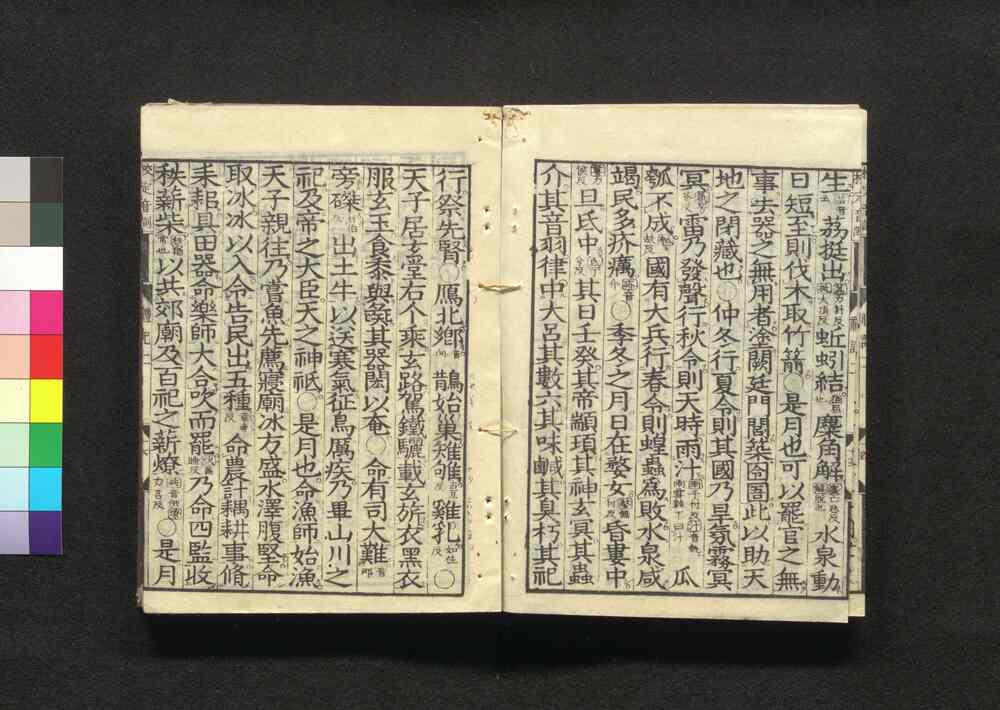 生荔挺出蚯蚓結麋角解水泉動
日短至則伐木取竹箭○是月也可以罷官之無
事去器之無用者塗闕廷門閭築囹圄此以助天
地之閉藏也○仲冬行夏令則其國乃旱氛霧冥
冥雷乃發聲行秋令則天時雨汁瓜
瓠不成國有大兵行春令則蝗蟲為敗水泉咸
竭民多疥癘○季冬之月日在婺女昏婁中
旦氐中其日壬癸其帝顓頊其神玄冥其蟲
介其音羽律中大呂其數六其味鹹其臭朽其祀
行祭先腎○鴈北鄉鵲始巢雉雊雞乳○
天子居玄堂右个乘玄路駕鐵驪載玄旂衣黑衣
服玄玉食黍與彘其器閎以奄○命有司大難
旁磔出土牛以送寒氣征鳥厲疾乃畢山川之
祀及帝之大臣天之神祇○是月也命漁師始漁
天子親往乃嘗魚先薦寢廟冰方盛水澤腹堅命
取冰冰以入令告民出五種命農計耦耕事脩
耒耜具田器命樂師大合吹而罷乃命四監收
秩薪柴以共郊廟及百祀之薪燎○是月